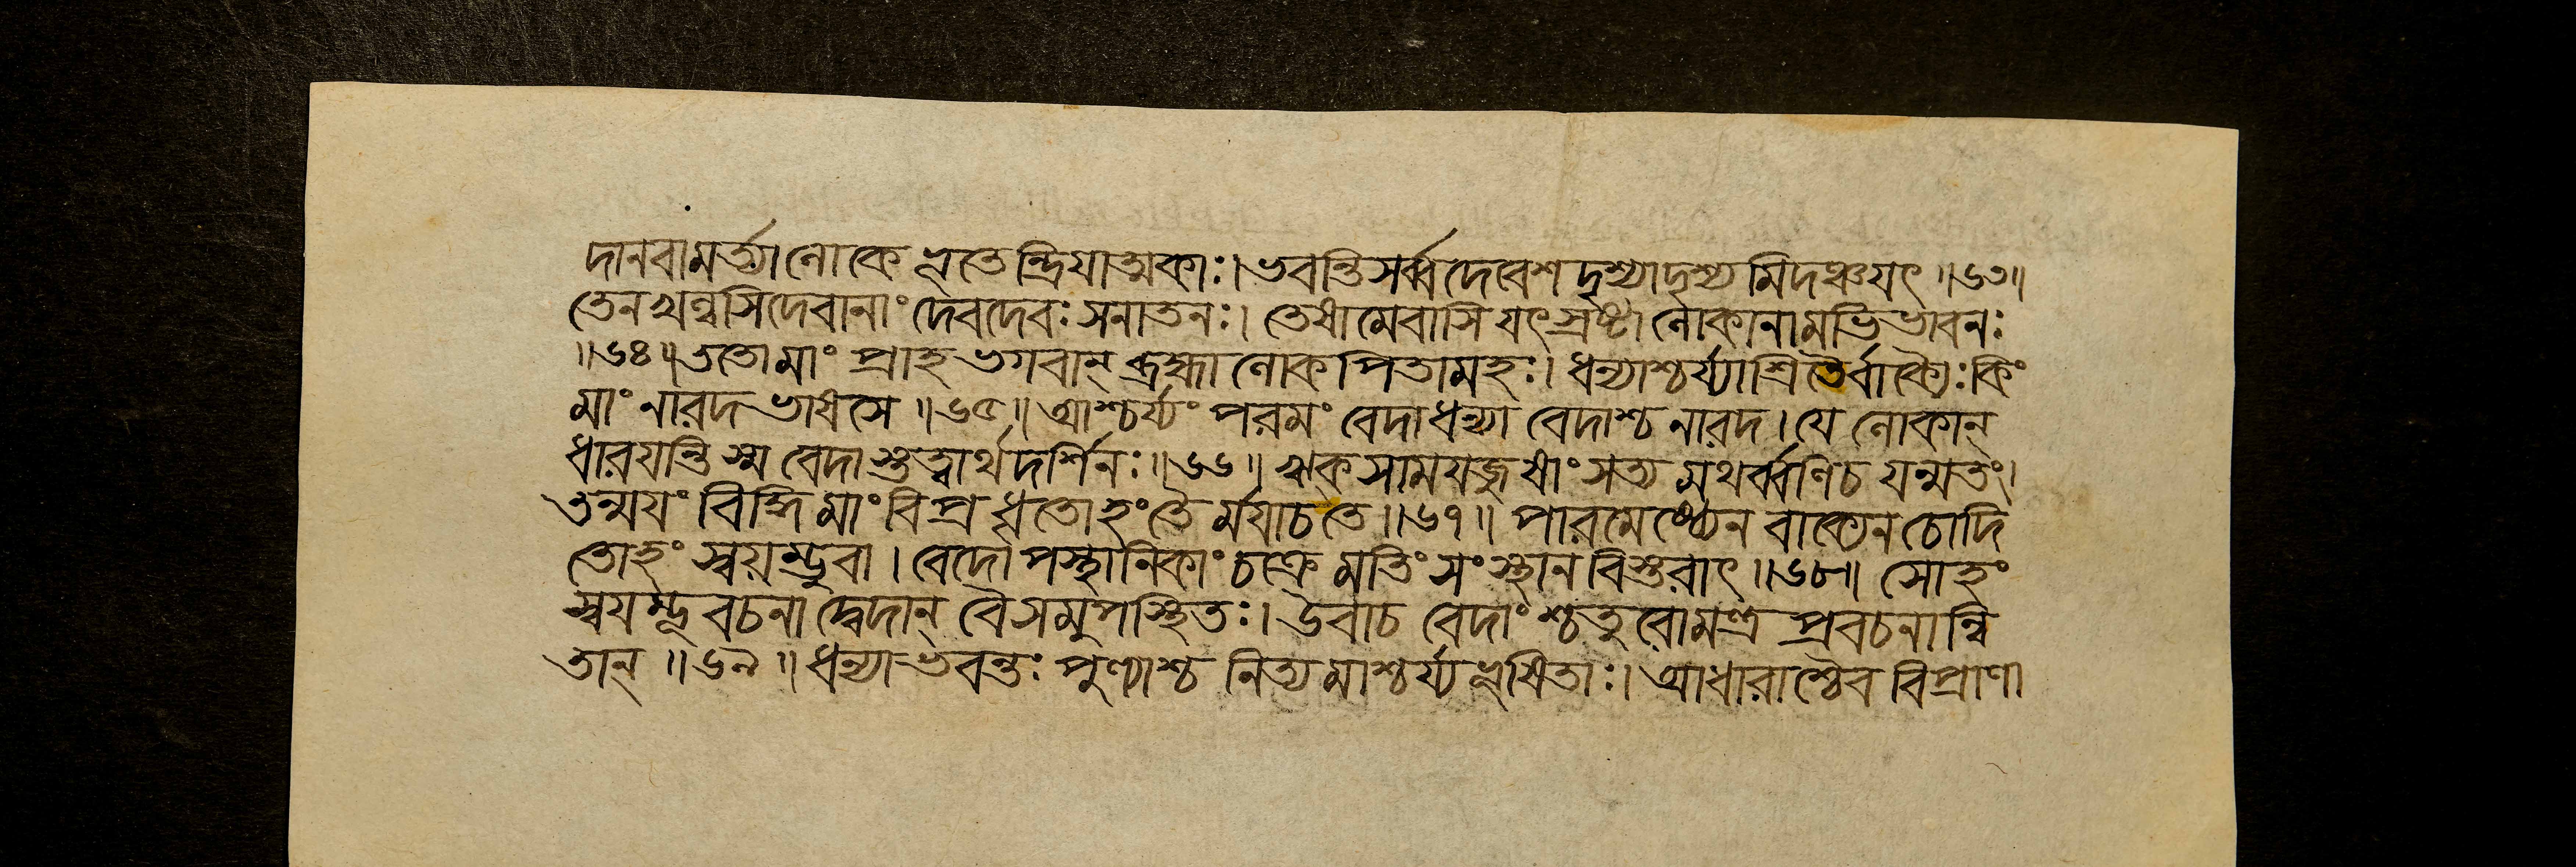 দানবামর্ত্যালোকে ভূতেন্দ্রিয়াত্মকাঃ। ভবন্তিসর্ব্বদেবেশদৃশ্যাদৃশ্যমিদঞ্চযৎ॥৬৩॥
তেনখল্বসিদেবানাং দেবদেবঃ সনাতনঃ। তেষামেবাসি যৎস্রষ্টা লোকানামভিভাবনঃ
॥৬৪॥ ততোমাং প্রাহ ভগবান্ ব্রহ্মা লোকপিতামহঃ। ধন্যাশ্চর্য্যাশ্রিতৈর্বাক্যৈঃ কিং
মাং নারদ ভাষসে॥৬৫॥ আশ্চর্য্যং পরমং বেদাধন্যা বেদাশ্চ নারদ। যে লোকান্
ধারয়ন্তি স্ম বেদাস্তত্ত্বার্থদর্শিনঃ॥৬৬॥ ঋক্সামযজুষাং সত্য মথর্ব্বণিচ যন্মতং।
তন্ময়ং বিদ্ধি মাং বিপ্র ধৃতোহং তৈ র্ময়াচতে॥৬৭॥ পারমেষ্ঠ্যেন বাক্যেন চোদি
তোহং স্বয়ম্ভুবা। বেদোপস্থানিকাং চক্রে মতিং সংস্থানবিস্তরাৎ॥৬৮॥ সোহং
স্বয়ম্ভূবচনাদ্বেদান্ বৈ সমুপস্থিতঃ। উবাচ বেদাংশ্চতুরোমন্ত্র প্রবচনান্বি
তান্॥৬৯॥ ধন্যাভবন্তঃ পুণ্যাশ্চ নিত্যমাশ্চর্য্যভূষিতাঃ। আধারাশ্চৈব বিপ্রাণা